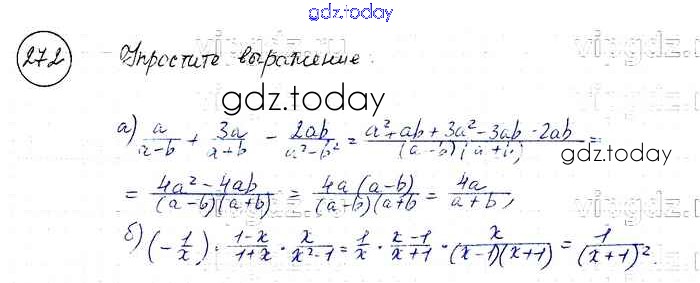 gdz.today
272 Упростите выражение.
vipgdz.ru
gdz.today
а) a/(a-b) + 3a/(a+b) - 2ab/(a²-b²) = (a²+ab+3a²-3ab-2ab)/((a-b)(a+b)) =
gdz.today
= (4a²-4ab)/((a-b)(a+b)) = (4a(a-b))/((a-b)(a+b) = 4a/(a+b),
б) (-1/x) · (1-x)/(1+x) · x/(x²-1) = 1/x · (x-1)/(x+1) · x/((x-1)(x+1)) = 1/(x+1)².